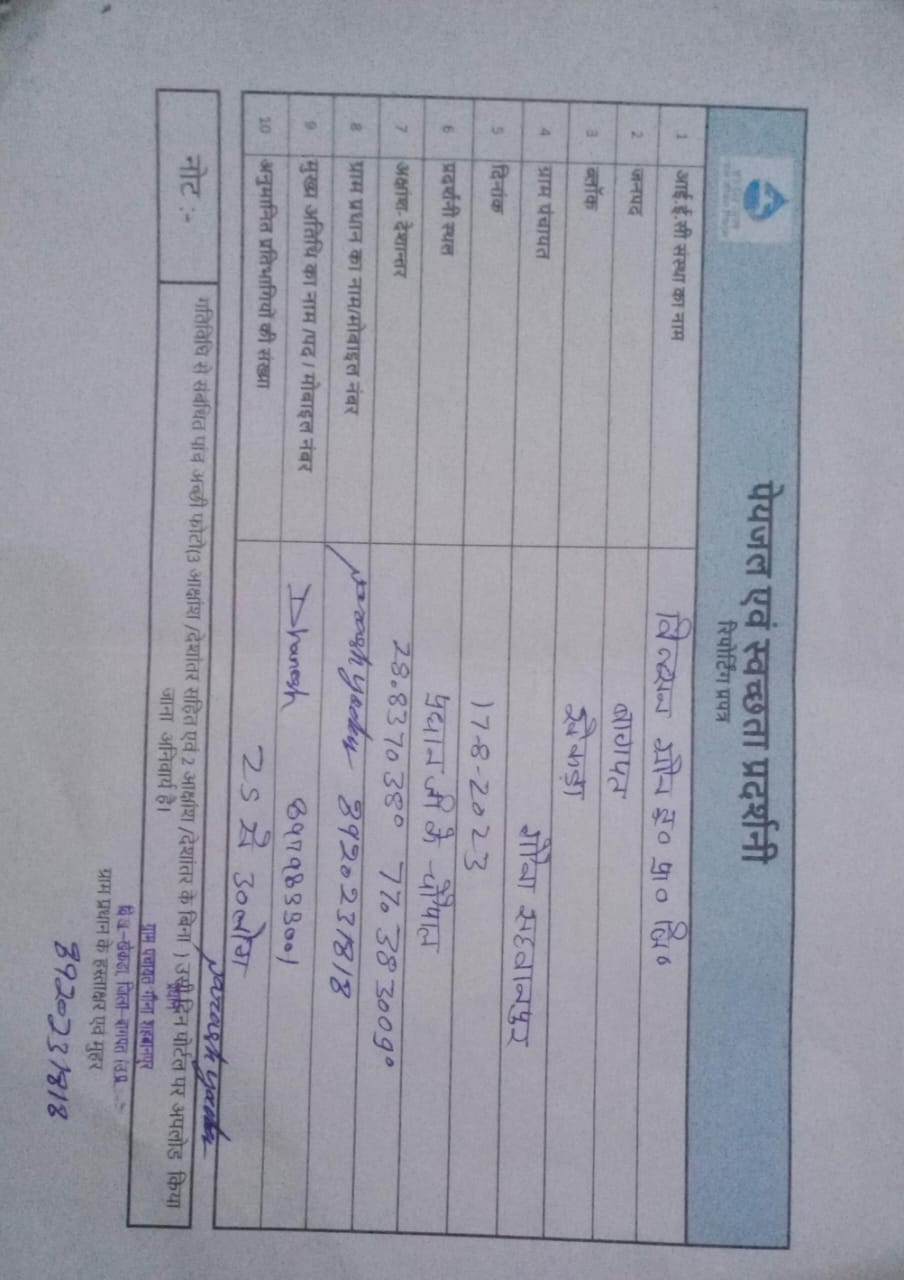 पेयजल एवं स्वच्छता प्रदर्शनी
रिपोर्टिंग प्रपत्र
1 आई.ई.सी संस्था का नाम विज़न ग्रीन इ० प्रा० लि०
2 जनपद बागपत
3 ब्लॉक खेकड़ा
4 ग्राम पंचायत गौना सहवानपुर
5 दिनांक 17-8-2023
6 प्रदर्शनी स्थल प्रधान जी के चौपाल
7 अक्षांश- देशान्तर 28.837038° 77.383009°
8 ग्राम प्रधान का नाम/मोबाइल नंबर 8920231818
9 मुख्य अतिथि का नाम /पद / मोबाइल नंबर Dhanesh
10 अनुमानित प्रतिभागियों की संख्या 25 से 30 लोग
नोट :- गतिविधि से संबंधित पांच अच्छी फोटो(3 आक्षांश /देशांतर सहित एवं 2 आक्षांश /देशांतर के बिना ) उसी दिन पोर्टल पर अपलोड किया
जाना अनिवार्य है।
ग्राम पंचायत गौना शहवानपुर
ग्राम प्रधान के हस्ताक्षर एवं मुहर
8920231818